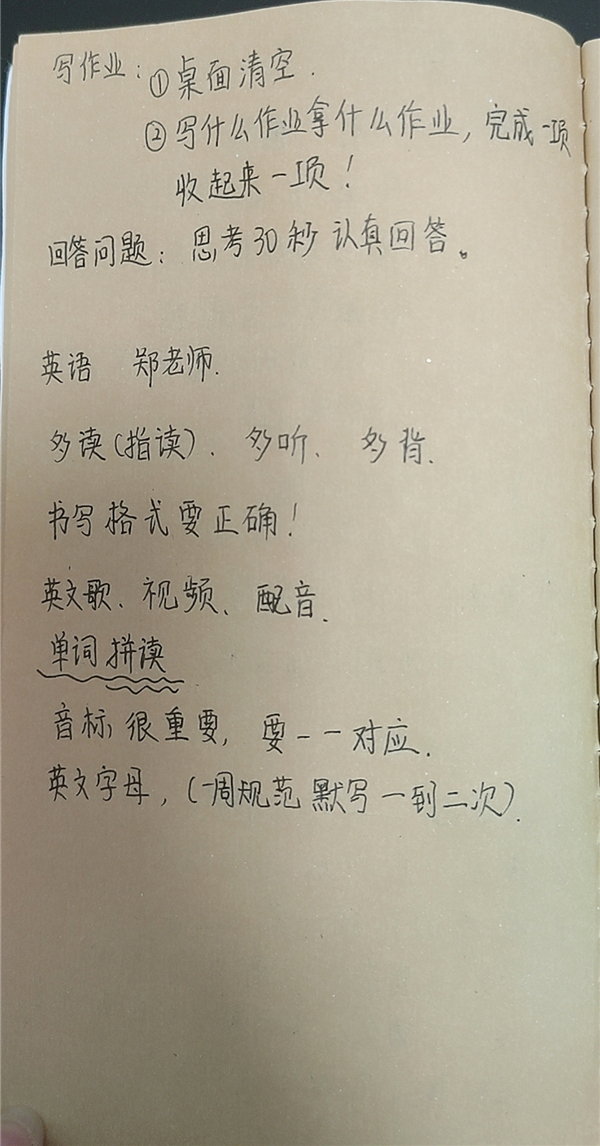 写作业：①桌面清空.
②写什么作业拿什么作业，完成一项
收起来一项！
回答问题：思考30秒 认真回答。
英语 郑老师.
多读(指读)、多听、多背.
书写格式要正确！
英文歌、视频、配音.
单词拼读
音标很重要，要一一对应.
英文字母，(一周规范默写一到二次).